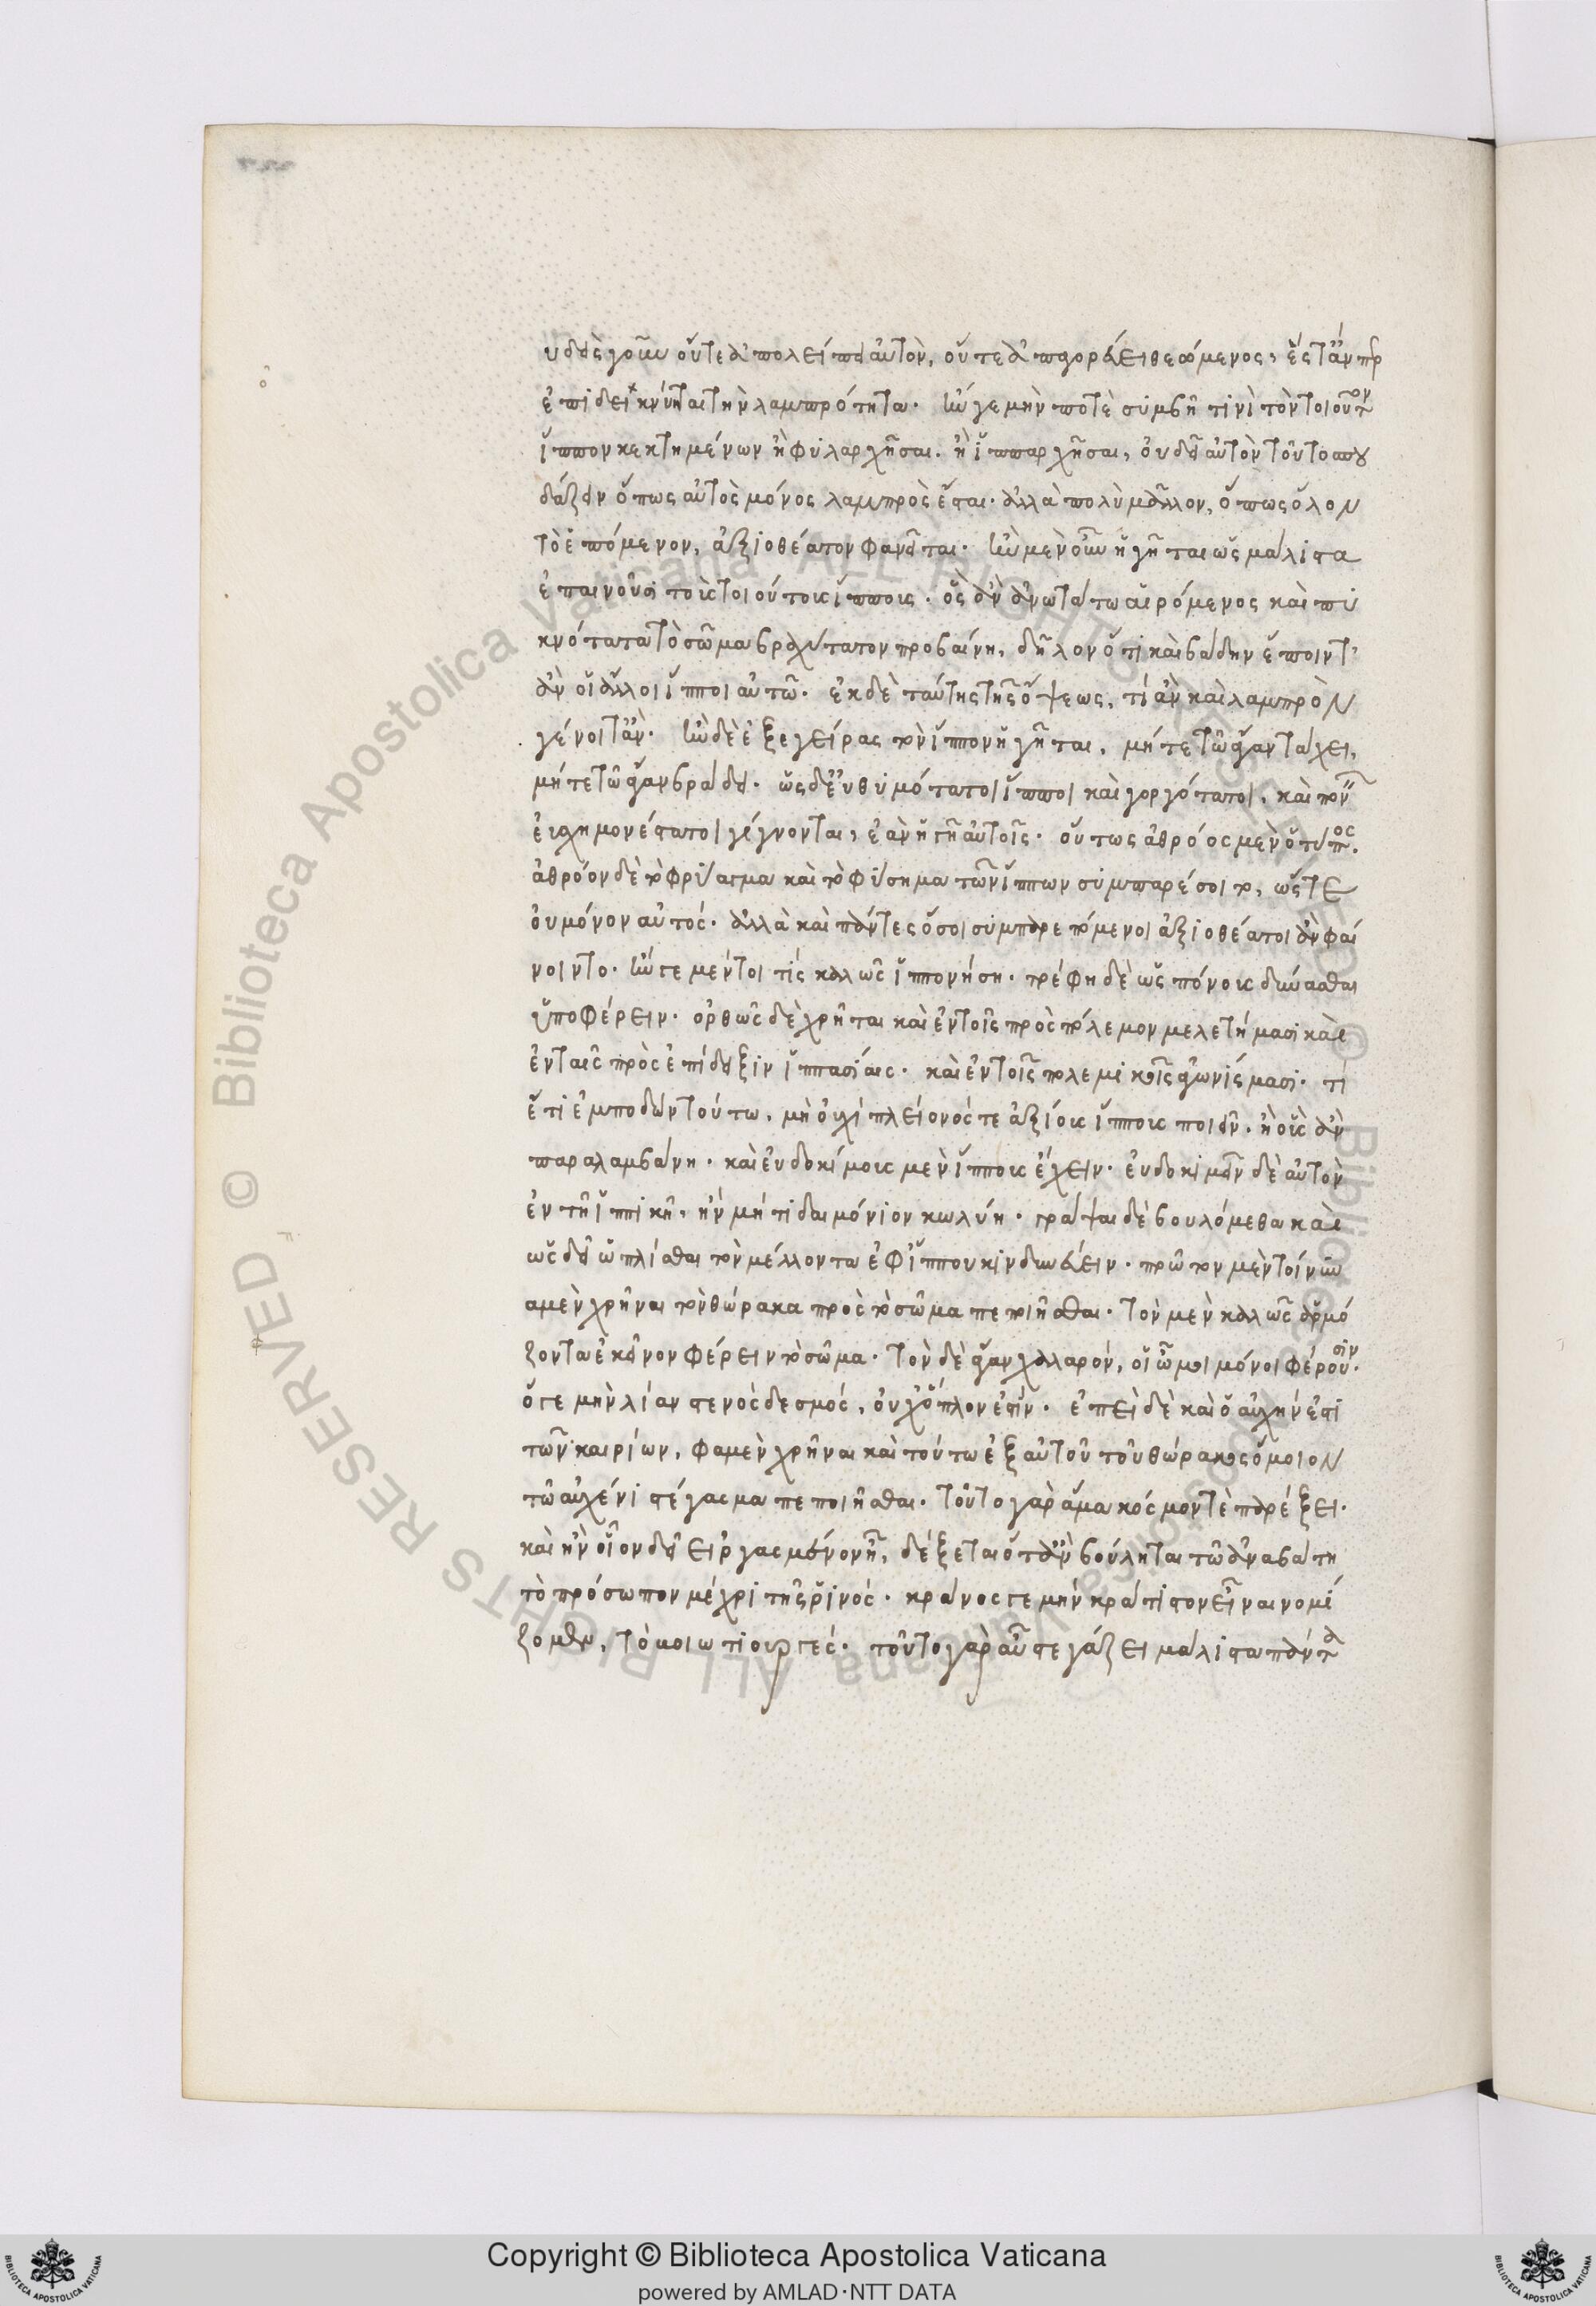 υδεὶς γοῦν οὔτε ἀπολείπει αὐτὸν, οὔτε ἀπαγορεύει θεώμενος, ἔς τ᾽ ἄν περ
ἐπιδεικνύηται τὴν λαμπρότητα. ἤν γε μήν ποτε συμβῆ τινὶ τὸν τοιοῦτον
ἵππον κεκτημένων ἢ φυλαρχῆσαι. ἢ ἱππαρχῆσαι, οὐ δεῖ αὐτὸν τοῦτο σπου
δάζειν ὅπως αὐτὸς μόνος λαμπρὸς ἔσται. ἀλλὰ πολὺ μᾶλλον, ὅπως ὅλον
τὸ ἑπόμενον, ἀξιοθέατον φανεῖται. ἢν μὲν οὖν ἡγῆται ὡς μάλιστα
ἐπαινοῦσι τοῖς τοιούτοις ἵπποις. ὃς ἂν ἀνωτάτω αἰρόμενος καὶ πυ
κνότατα τὸ σῶμα βραχύτατον προβαίνη, δῆλον ὅτι καὶ βάδην ἕποιντ᾽
ἂν οἱ ἄλλοι ἵπποι αὐτῶ. ἐκ δὲ ταύτης τῆς ὄψεως, τί ἂν καὶ λαμπρὸν
γένοιτ᾽ ἄν. ἢν δὲ ἐξεγείρας τὸν ἵππον ἡγῆται, μήτε τῶ ἄγαν τάχει,
μήτε τῶ ἄγαν βραδεῖ. ὡς δ᾽ εὐθυμότατοι ἵπποι καὶ γοργότατοι, καὶ πονεῖν
εὐσχημονέστατοι γίγνονται, ἐὰν ἡγῆ αὐτοῖς. οὕτως ἀθρόος μὲν ὁ τύπος.
ἀθρόον δὲ τὸ φρύαγμα καὶ τὸ φύσημα τῶν ἵππων συμπαρέσοιτο, ὥστε
οὐ μόνον αὐτός. ἀλλὰ καὶ πάντες ὅσοι συμπαρεπόμενοι ἀξιοθέατοι ἂν φαί
νοιντο. ἤν γε μέντοι τίς καλῶς ἱππονήση. τρέφη δὲ ὡς πόνοις δύνασθαι
ὑποφέρειν. ὀρθῶς δὲ χρῆται καὶ ἐν τοῖς πρὸς πόλεμον μελετήμασι καὶ
ἐν ταῖς πρὸς ἐπίδειξιν ἱππασίαις. καὶ ἐν τοῖς πολεμικοῖς ἀγωνίσμασι. τί
ἔτι ἐμποδὼν τούτω, μὴ οὐχὶ πλείονός τε ἀξίοις ἵπποις ποιεῖν. ἢ οἷς ἂν
παραλαμβάνη. καὶ εὐδοκίμοις μὲν ἵπποις ἔχειν. εὐδοκιμεῖν δὲ αὐτὸν
ἐν τῆ ἱππικῆ. ἢν μή τι δαιμόνιον κωλύη. γράψαι δὲ βουλόμεθα καὶ
ὡς δεῖ ὡπλίσθαι τὸν μέλλοντα ἐφ᾽ ἵππου κινδυνεύειν. πρῶτον μὲν τοίνυν
αμὲν χρῆναι τὸν θώρακα πρὸς τὸ σῶμα πεποιῆσθαι. τὸν μὲν καλῶς ἁρμό
ζοντα ἐκεῖνον φέρειν τὸ σῶμα. τὸν δὲ ἄγαν χαλαρόν, οἱ ὦμοι μόνοι φέρουσιν.
ὅ γε μὴν λίαν στενὸς δεσμός, οὐχ ὅπλον ἐστίν. ἐπεὶ δὲ καὶ ὁ αὐχήν ἐστι
τῶν καιρίων, φαμὲν χρῆναι καὶ τούτω ἐξ αὐτοῦ τοῦ θώρακος ὅμοιον
τῶ αὐχένι στέγασμα πεποιῆσθαι. τοῦτο γὰρ ἅμα κόσμον τὲ παρέξει.
καὶ ἢν οἷον δεῖ εἰργασμένον ἦ, δέξεται ὅταν βούληται τῶ ἀναβάτη
τὸ πρόσωπον μέχρι τῆς ῥινός. κράνος γε μὴν κράτιστον εἶναι νομί
ζομεν, τὸ κοιωτιουργές. τοῦτο γὰρ αὖ στεγάζει μάλιστα πάντα